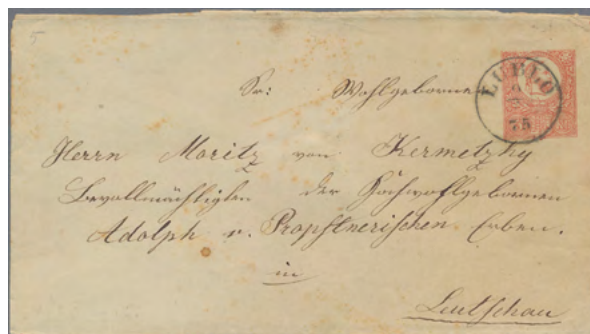 5
LUBLO
75
Sr: Wohlgebornen
Herrn Moritz von Kermetzky
Bevollmächtigten der Hochwohlgebornen
Adolph v. Propstnerischen Erben.
in
Leutschau